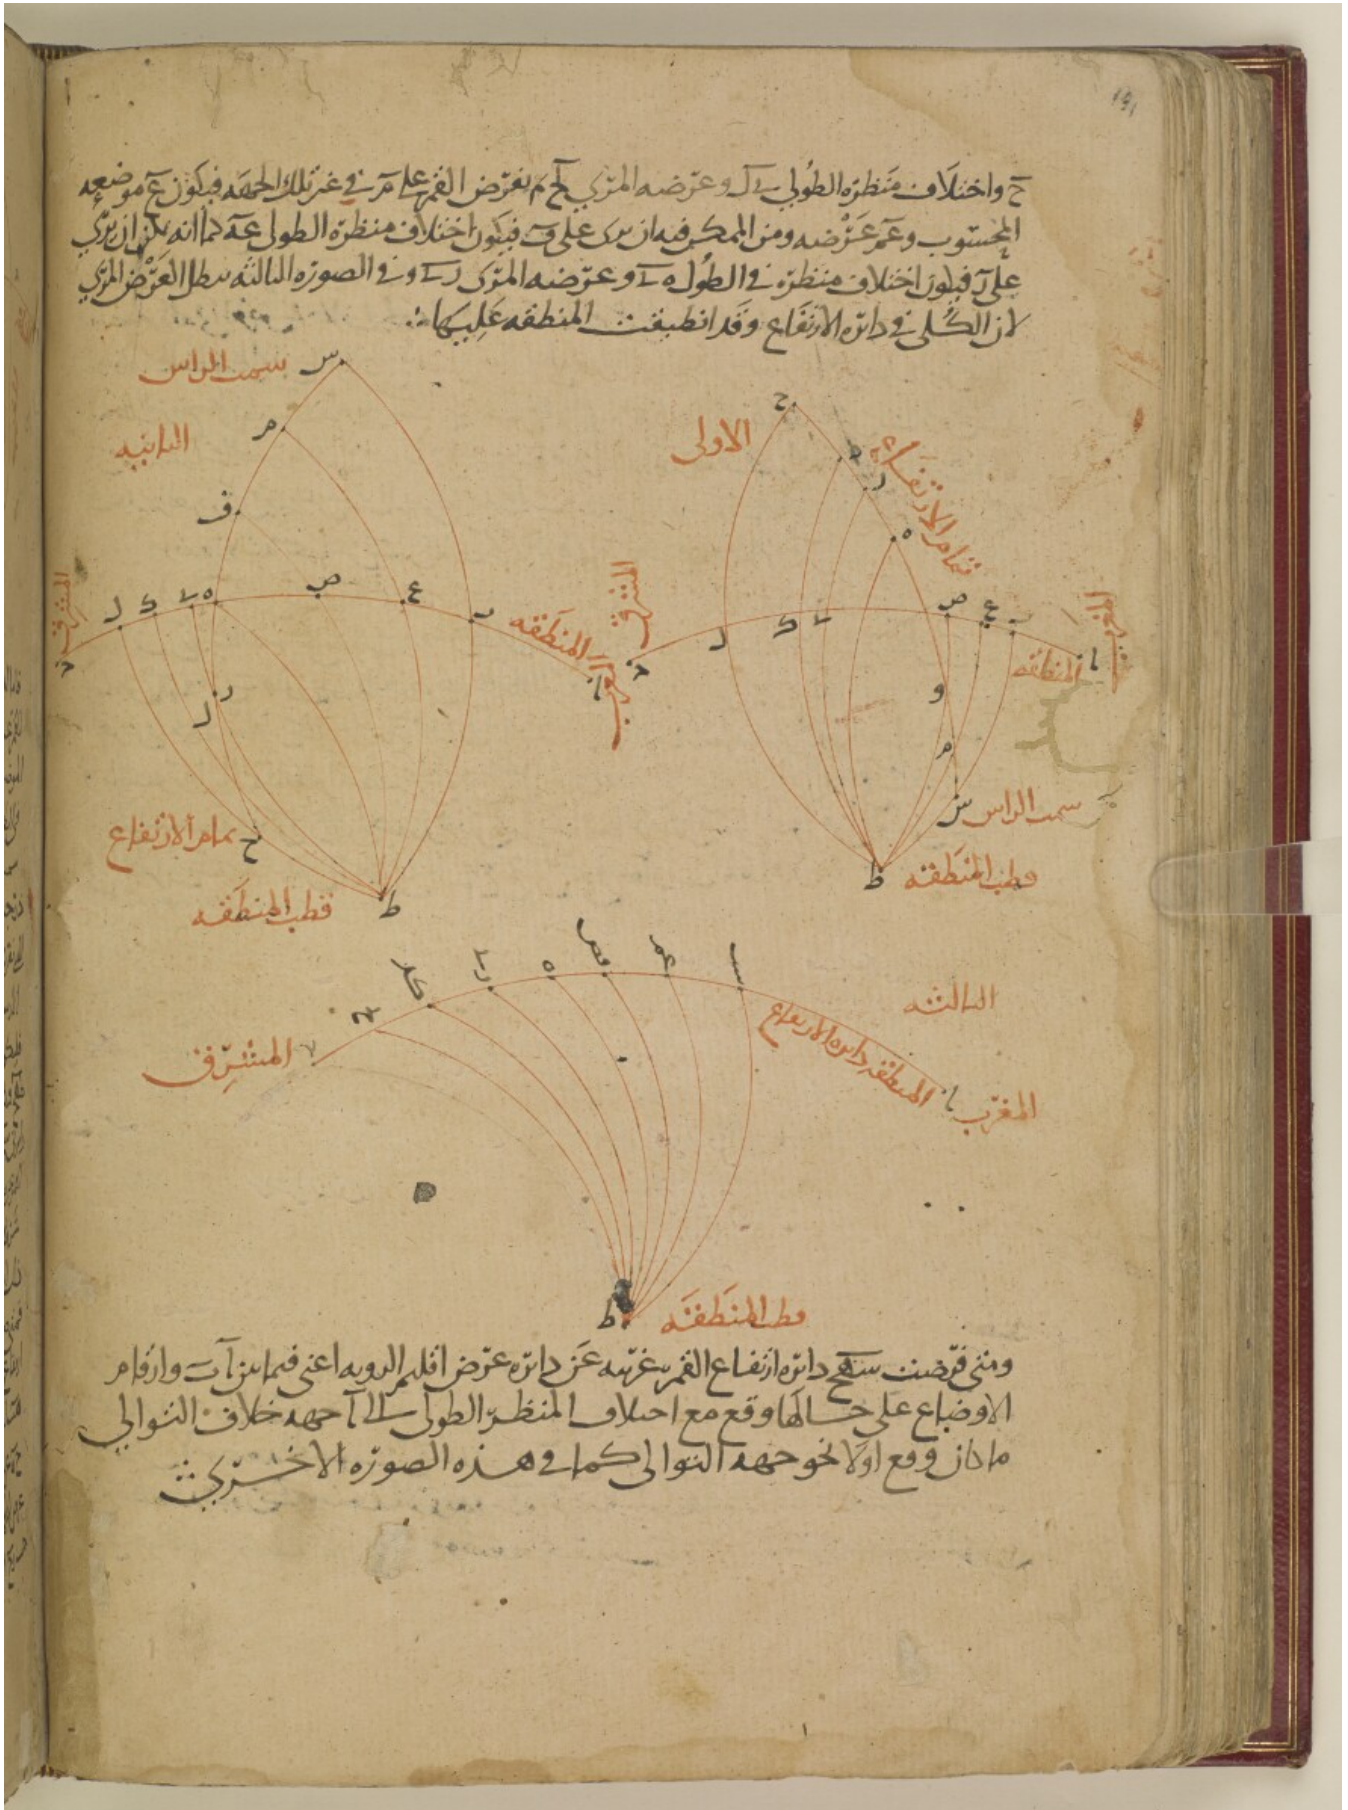 ح واختلاف منظره الطولي ك ل وعرضه المرئي لح ثم نفرض القمر على م في غير تلك الجهه فيكون ع موضعه
المحسوب وعم عرضه ومن الممكن فيه ان يرى على ف فيكون اختلاف منظره الطولي عه كما انه يمكن ان يرى
على ر فيكون اختلاف منظره في الطول ه ى وعرضه المرئي ر ى وفي الصوره الثالثه يبطل العرض المرئي
لان الكل في دائره الارتفاع وقد انطبقت المنطقه عليها
سمت الراس
س
م
الثانيه
ف
المشرق
ل
ك
ى
ه
ص
ع
ب
المنطقه
المغرب
ا
ر
ح
تمام الارتفاع
ط
قطب المنطقه
الاولى
ح
ر
ه
تمام الارتفاع
المشرق
ل
ك
ى
ص
ع
ب
المنطقه
المغرب
ا
و
م
س
سمت الراس
ط
قطب المنطقه
الثالثه
كل
ه
فص
عم
المشرق
المنطقه دائره الارتفاع
ا
المغرب
ط
قطب المنطقه
ومتى فرضت دائره ارتفاع القمر غربيه عن دائره عرض اقليم الرويه اعني فيما بين آ ب وارقام
الاوضاع على حالها وقع مع اختلاف المنظر الطولي الى آ جهه خلاف التوالي
ما كان وقع اولا نحو جهه التوالي كما في هذه الصوره الاخرى